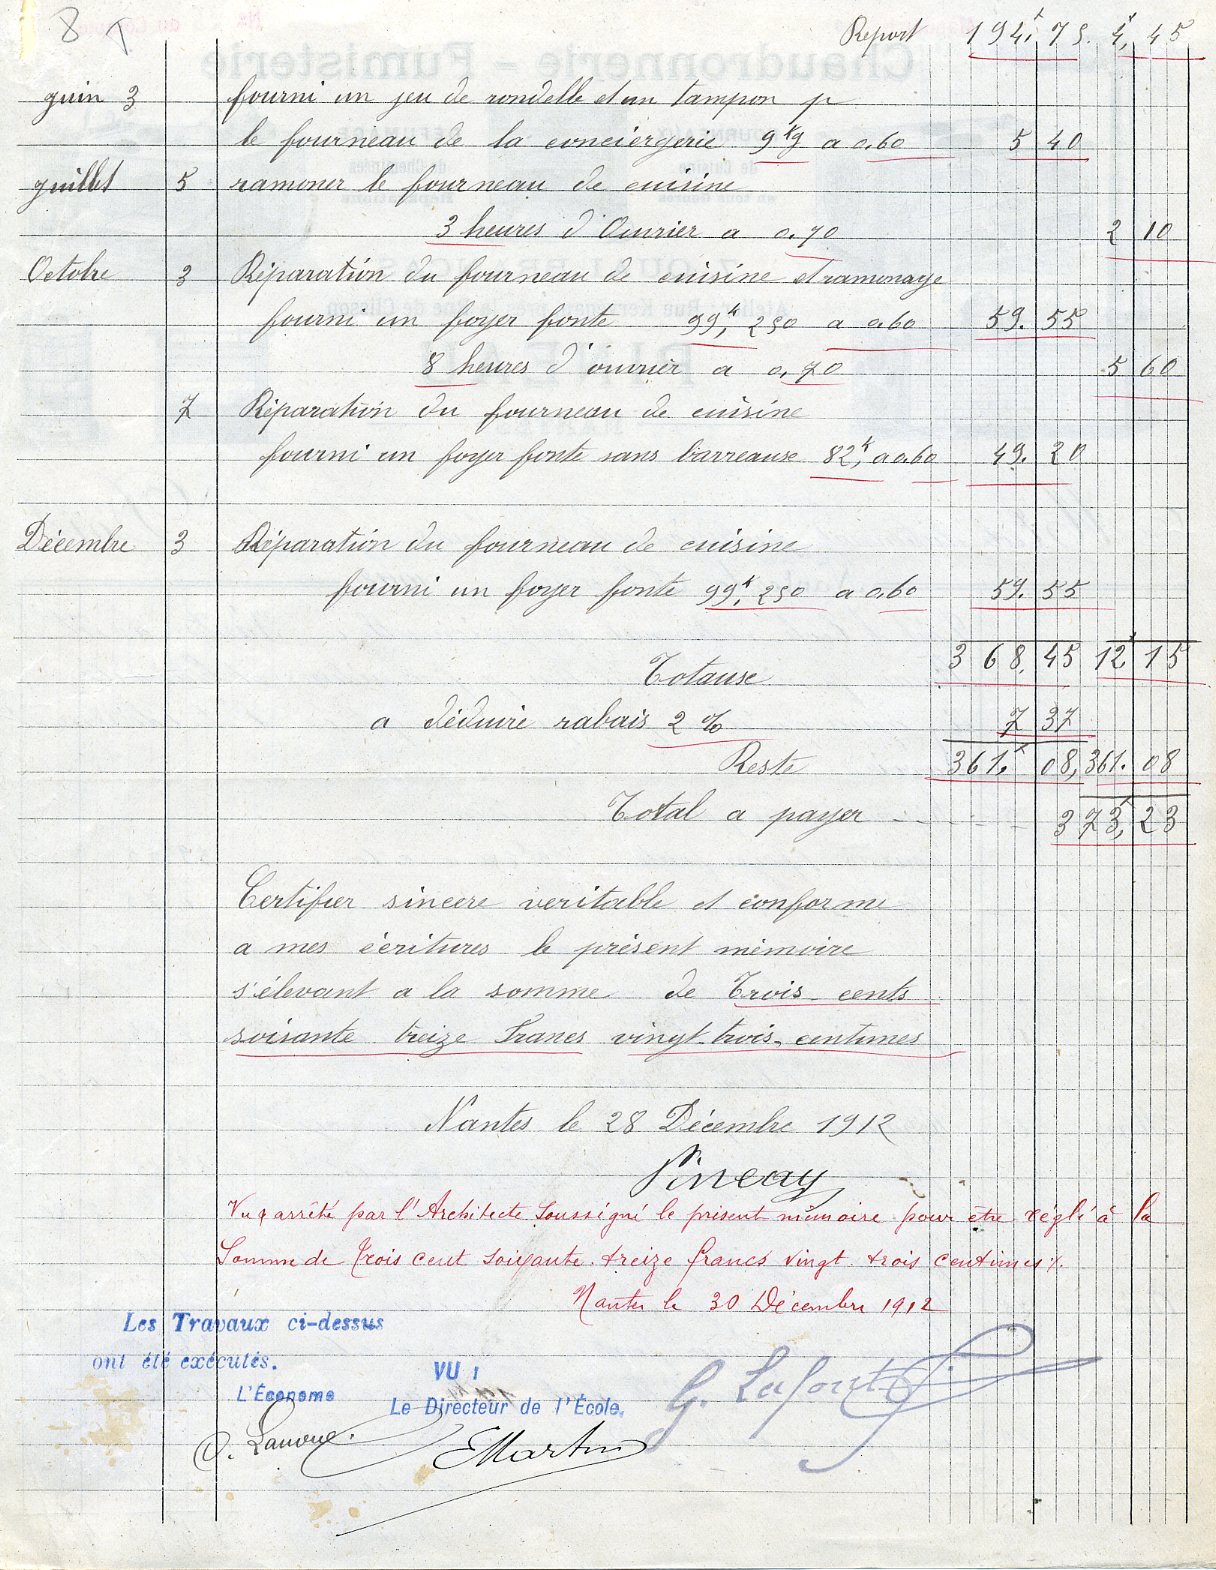 8
Report 194,75. 4,45
juin 3 fourni un jeu de rondelle et un tampon p
le fourneau de la conciergerie 9kg a 0.60 5 40
juillet 5 ramoner le fourneau de cuisine
3 heures d'Ouvrier a 0.70 2 10
Octobre 3 Réparation du fourneau de cuisine et ramonage
fourni un foyer fonte 99k,250 a 0.60 59.55
8 heures d'ouvrier a 0.70 5 60
7 Réparation du fourneau de cuisine
fourni un foyer fonte sans barreause 82k, a 0.60 49.20
Décembre 3 Réparation du fourneau de cuisine
fourni un foyer fonte 99k,250 a 0.60 59.55
Totause 368,45 12 15
a déduire rabais 2 % 7 37
Reste 361,08, 361.08
Total a payer 373,23
Certifier sincere veritable et conforme
a mes écritures le présent mémoire
s'élevant a la somme de Trois-cents
soisante treize francs vingt-trois-centimes
Nantes le 28 Décembre 1912
Pineau
Vu & arrêté par l'Architecte soussigné le présent mémoire pour être réglé à la
Somme de Trois cent soixante treize francs vingt trois centimes
Nantes le 30 Décembre 1912
Les Travaux ci-dessus
ont été exécutés.
L'Économe
VU :
Le Directeur de l'École,
G. Lafont
EMartin